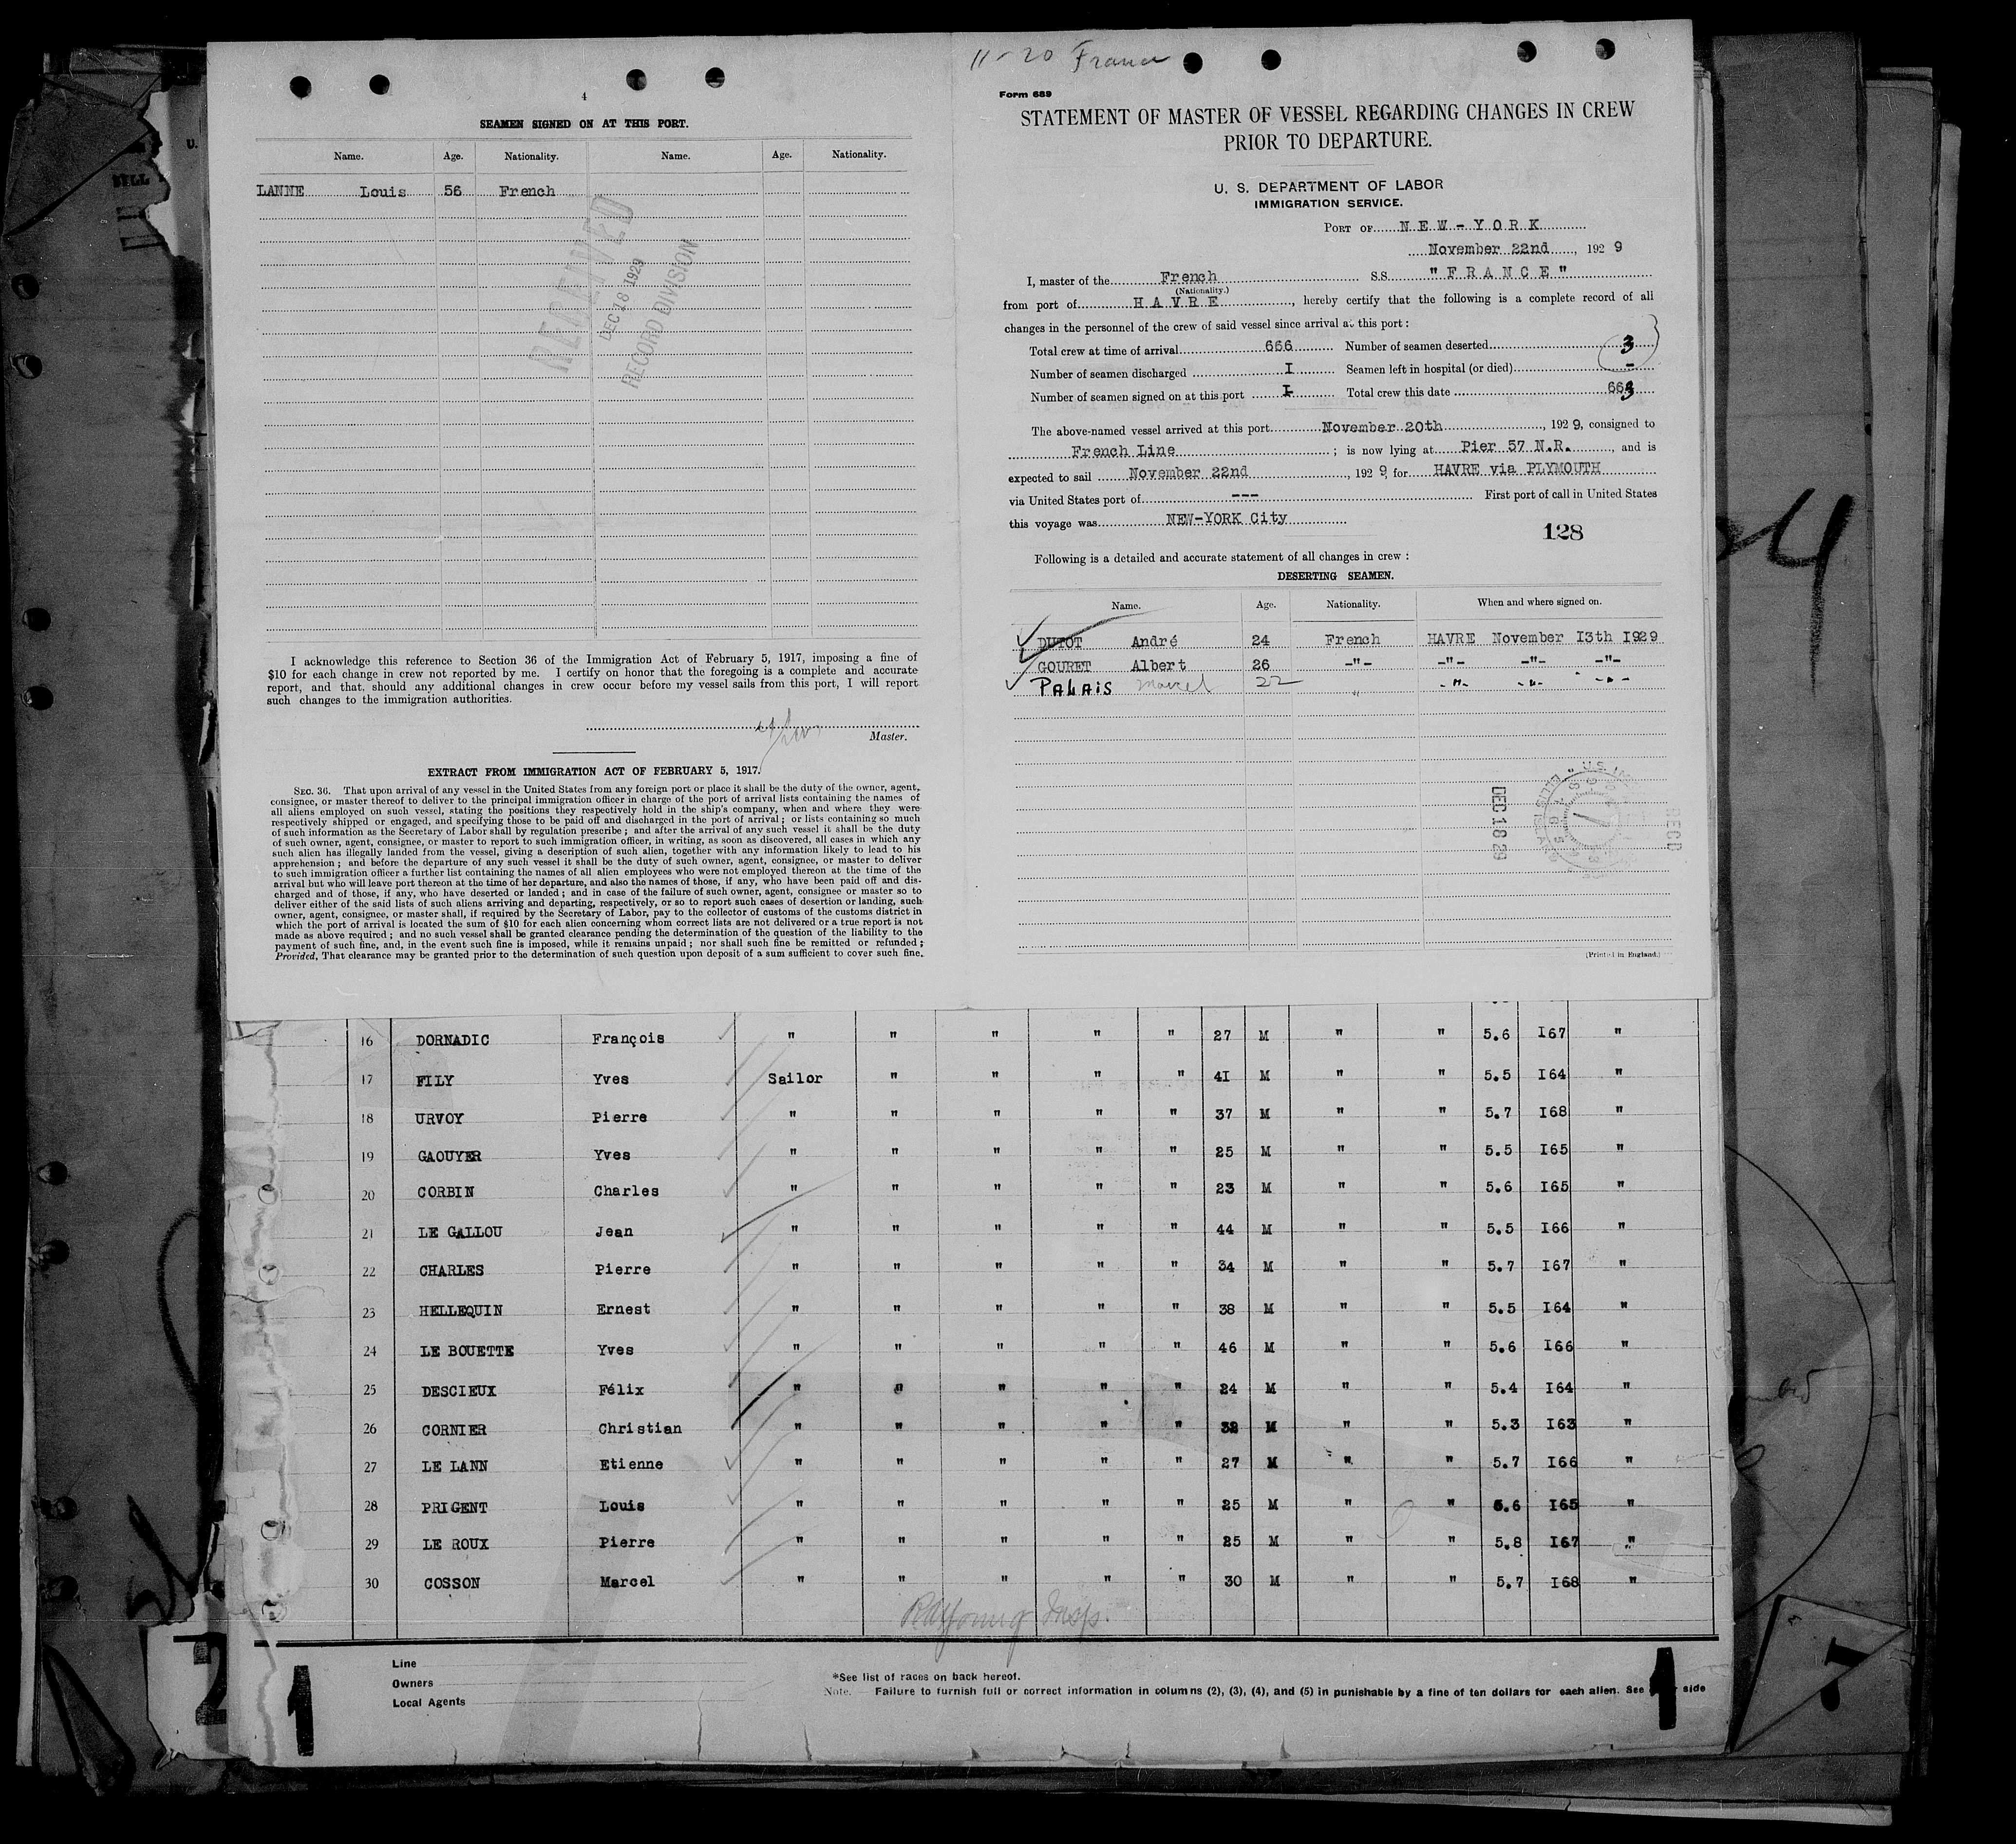 4
SEAMEN SIGNED ON AT THIS PORT.
Name. Age. Nationality. Name. Age. Nationality.
LANNE Louis 56 French
RECEIVED
DEC 18 1929
RECORD DIVISION
I acknowledge this reference to Section 36 of the Immigration Act of February 5, 1917, imposing a fine of
$10 for each change in crew not reported by me. I certify on honor that the foregoing is a complete and accurate
report, and that, should any additional changes in crew occur before my vessel sails from this port, I will report
such changes to the immigration authorities.
Master.
EXTRACT FROM IMMIGRATION ACT OF FEBRUARY 5, 1917.
SEC. 36. That upon arrival of any vessel in the United States from any foreign port or place it shall be the duty of the owner, agent,
consignee, or master thereof to deliver to the principal immigration officer in charge of the port of arrival lists containing the names of
all aliens employed on such vessel, stating the positions they respectively hold in the ship's company, when and where they were
respectively shipped or engaged, and specifying those to be paid off and discharged in the port of arrival; or lists containing so much
of such information as the Secretary of Labor shall by regulation prescribe; and after the arrival of any such vessel it shall be the duty
of such owner, agent, consignee, or master to report to such immigration officer, in writing, as soon as discovered, all cases in which any
such alien has illegally landed from the vessel, giving a description of such alien, together with any information likely to lead to his
apprehension; and before the departure of any such vessel it shall be the duty of such owner, agent, consignee, or master to deliver
to such immigration officer a further list containing the names of all alien employees who were not employed thereon at the time of the
arrival but who will leave port thereon at the time of her departure, and also the names of those, if any, who have been paid off and dis-
charged and of those, if any, who have deserted or landed; and in case of the failure of such owner, agent, consignee or master so to
deliver either of the said lists of such aliens arriving and departing, respectively, or so to report such cases of desertion or landing, such
owner, agent, consignee, or master shall, if required by the Secretary of Labor, pay to the collector of customs of the customs district in
which the port of arrival is located the sum of $10 for each alien concerning whom correct lists are not delivered or a true report is not
made as above required; and no such vessel shall be granted clearance pending the determination of the question of the liability to the
payment of such fine, and, in the event such fine is imposed, while it remains unpaid; nor shall such fine be remitted or refunded;
Provided, That clearance may be granted prior to the determination of such question upon deposit of a sum sufficient to cover such fine.
11-20 France
Form 689
STATEMENT OF MASTER OF VESSEL REGARDING CHANGES IN CREW
PRIOR TO DEPARTURE.
U. S. DEPARTMENT OF LABOR
IMMIGRATION SERVICE.
PORT OF NEW-YORK
November 22nd, 1929
I, master of the French S.S. "FRANCE"
(Nationality.)
from port of HAVRE, hereby certify that the following is a complete record of all
changes in the personnel of the crew of said vessel since arrival at this port:
Total crew at time of arrival 666 Number of seamen deserted 3
Number of seamen discharged I Seamen left in hospital (or died) -
Number of seamen signed on at this port I Total crew this date 663
The above-named vessel arrived at this port November 20th, 1929, consigned to
French Line; is now lying at Pier 57 N.R., and is
expected to sail November 22nd, 1929 for HAVRE via PLYMOUTH
via United States port of --- First port of call in United States
this voyage was NEW-YORK City
128
Following is a detailed and accurate statement of all changes in crew:
DESERTING SEAMEN.
Name. Age. Nationality. When and where signed on.
DUTOT André 24 French HAVRE November I3th I929
GOURET Albert 26 -"- -"- -"- -"-
PALAIS Marcel 22 " -"- -"- -"-
DEC 18 29
REC'D
[Printed in England.]
16 DORNADIC François " " " " " 27 M " " 5.6 I67 "
17 FILY Yves Sailor " " " " 4I M " " 5.5 I64 "
18 URVOY Pierre " " " " " 37 M " " 5.7 I68 "
19 GAOUYER Yves " " " " " 25 M " " 5.5 I65 "
20 CORBIN Charles " " " " " 23 M " " 5.6 I65 "
21 LE GALLOU Jean " " " " " 44 M " " 5.5 I66 "
22 CHARLES Pierre " " " " " 34 M " " 5.7 I67 "
23 HELLEQUIN Ernest " " " " " 38 M " " 5.5 I64 "
24 LE BOUETTE Yves " " " " " 46 M " " 5.6 I66 "
25 DESCIEUX Félix " " " " " 24 M " " 5.4 I64 "
26 CORNIER Christian " " " " " 32 M " " 5.3 I63 "
27 LE LANN Etienne " " " " " 27 M " " 5.7 I66 "
28 PRIGENT Louis " " " " " 25 M " " 5.6 I65 "
29 LE ROUX Pierre " " " " " 25 M " " 5.8 I67 "
30 COSSON Marcel " " " " " 30 M " " 5.7 I68 "
Line
Owners
Local Agents
*See list of races on back hereof.
Note. Failure to furnish full or correct information in columns (2), (3), (4), and (5) in punishable by a fine of ten dollars for each alien. See side
1
1
2
4